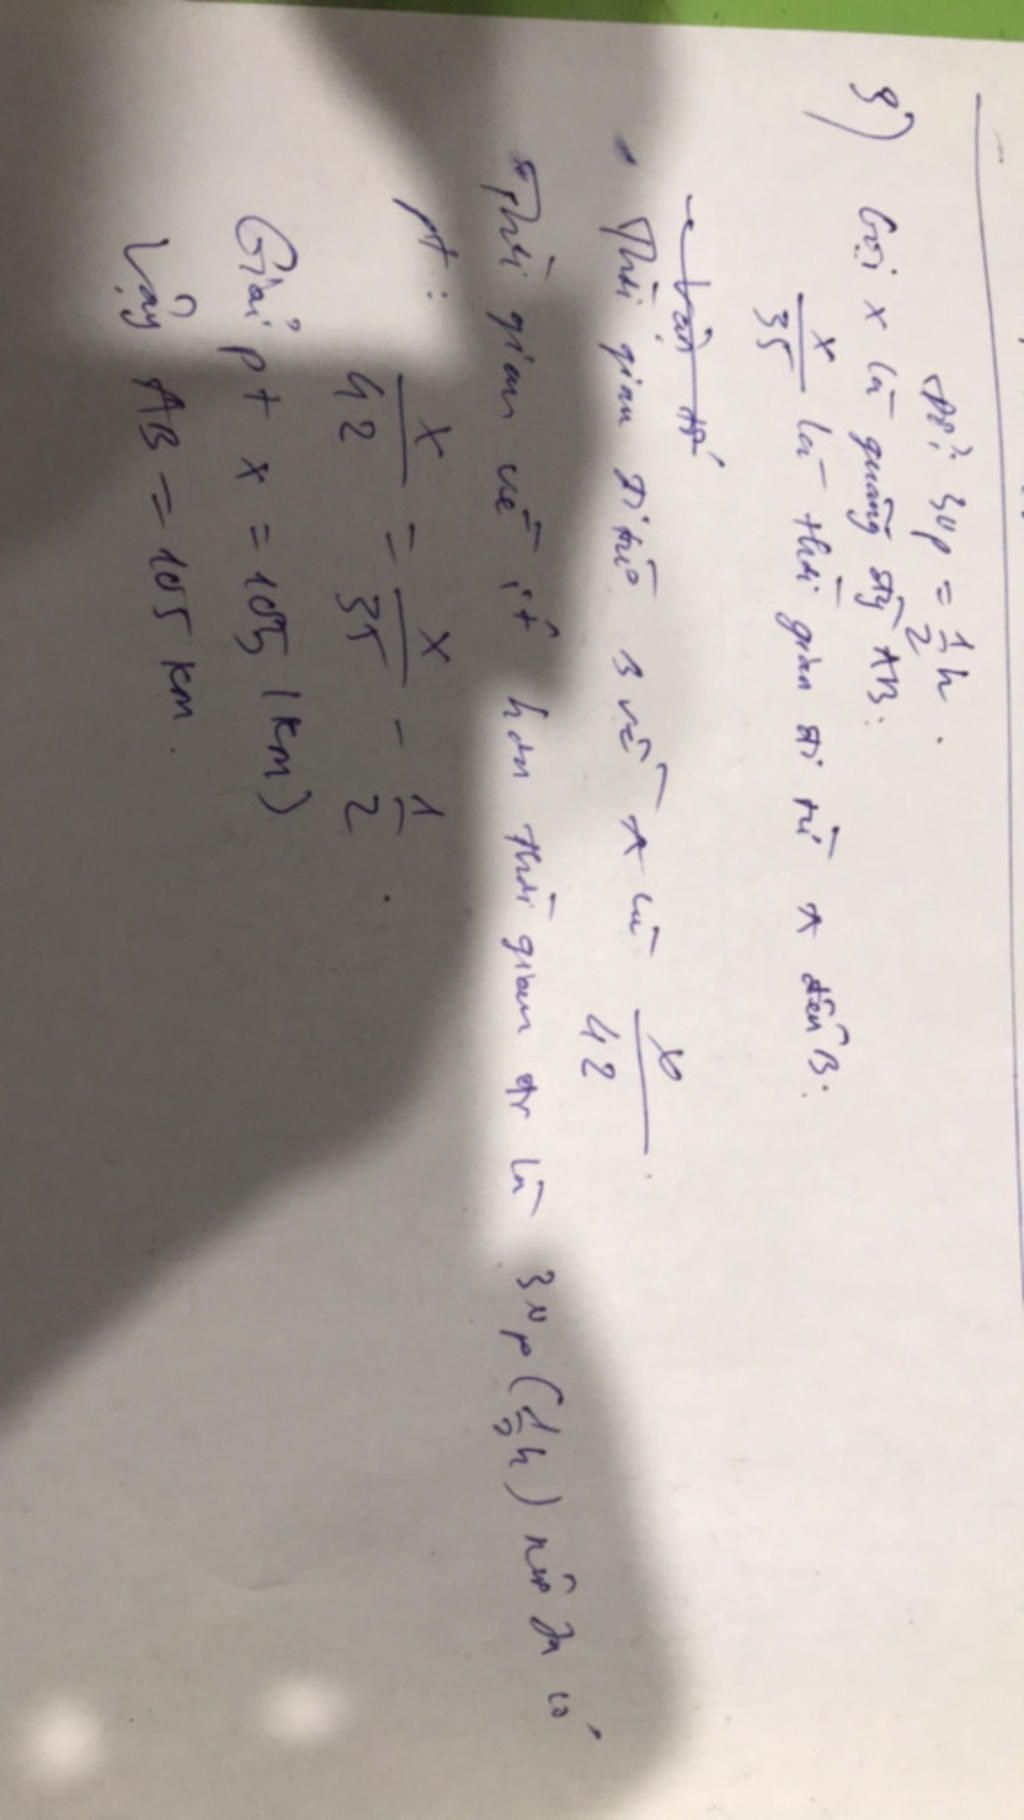 9)
Đổi 30p = 1/2 h.
Gọi x là quãng đg AB.
x/35 là thời gian đi từ A đến B.
Vận tố
• Thời gian đi từ B về A là x/42.
Thời gian về ít hơn thời gian đi là 30p (1/2 h) nên ta có
pt:
x/42 = x/35 - 1/2.
Giải pt x = 105 (km)
Vậy AB = 105 km.